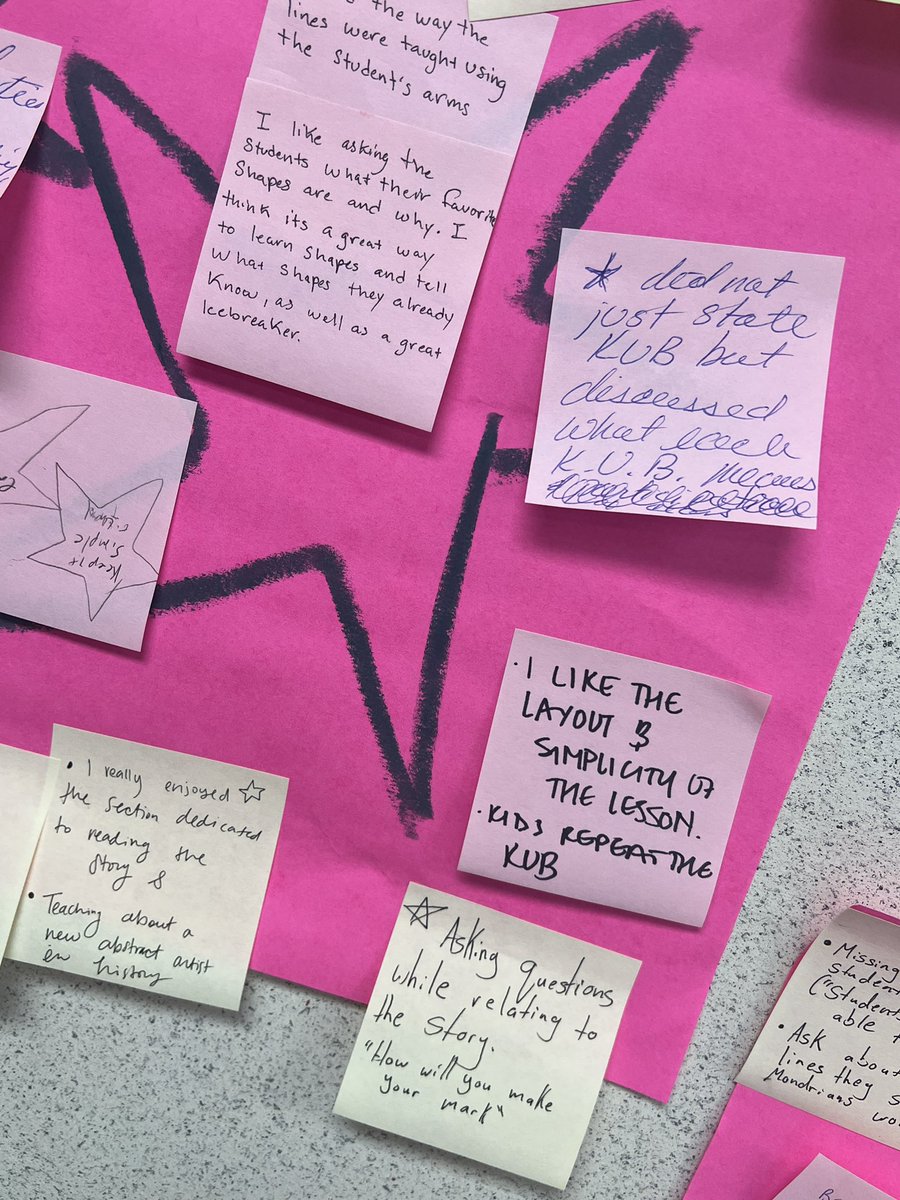 the way the
lines were taught using
the student's arms
I like asking the
Students what their favorite
Shapes are and why. I
think its a great way
to learn shapes and tell
what shapes they already
know, as well as a great
Icebreaker.
did not
just state
KUB but
discussed
what each
K.U.B. means
Keep it
Simple
· I LIKE THE
LAYOUT &
SIMPLICITY OF
THE LESSON.
· KIDS REPEAT THE
KUB
• I really enjoyed
the section dedicated
to reading the
Story &
• Teaching about a
new abstract artist
in history
Asking questions
while relating to
the story.
"How will you make
your mark"
• Missing
Student
("Students
able t
• Ask about
lines they s
Mondrians wo